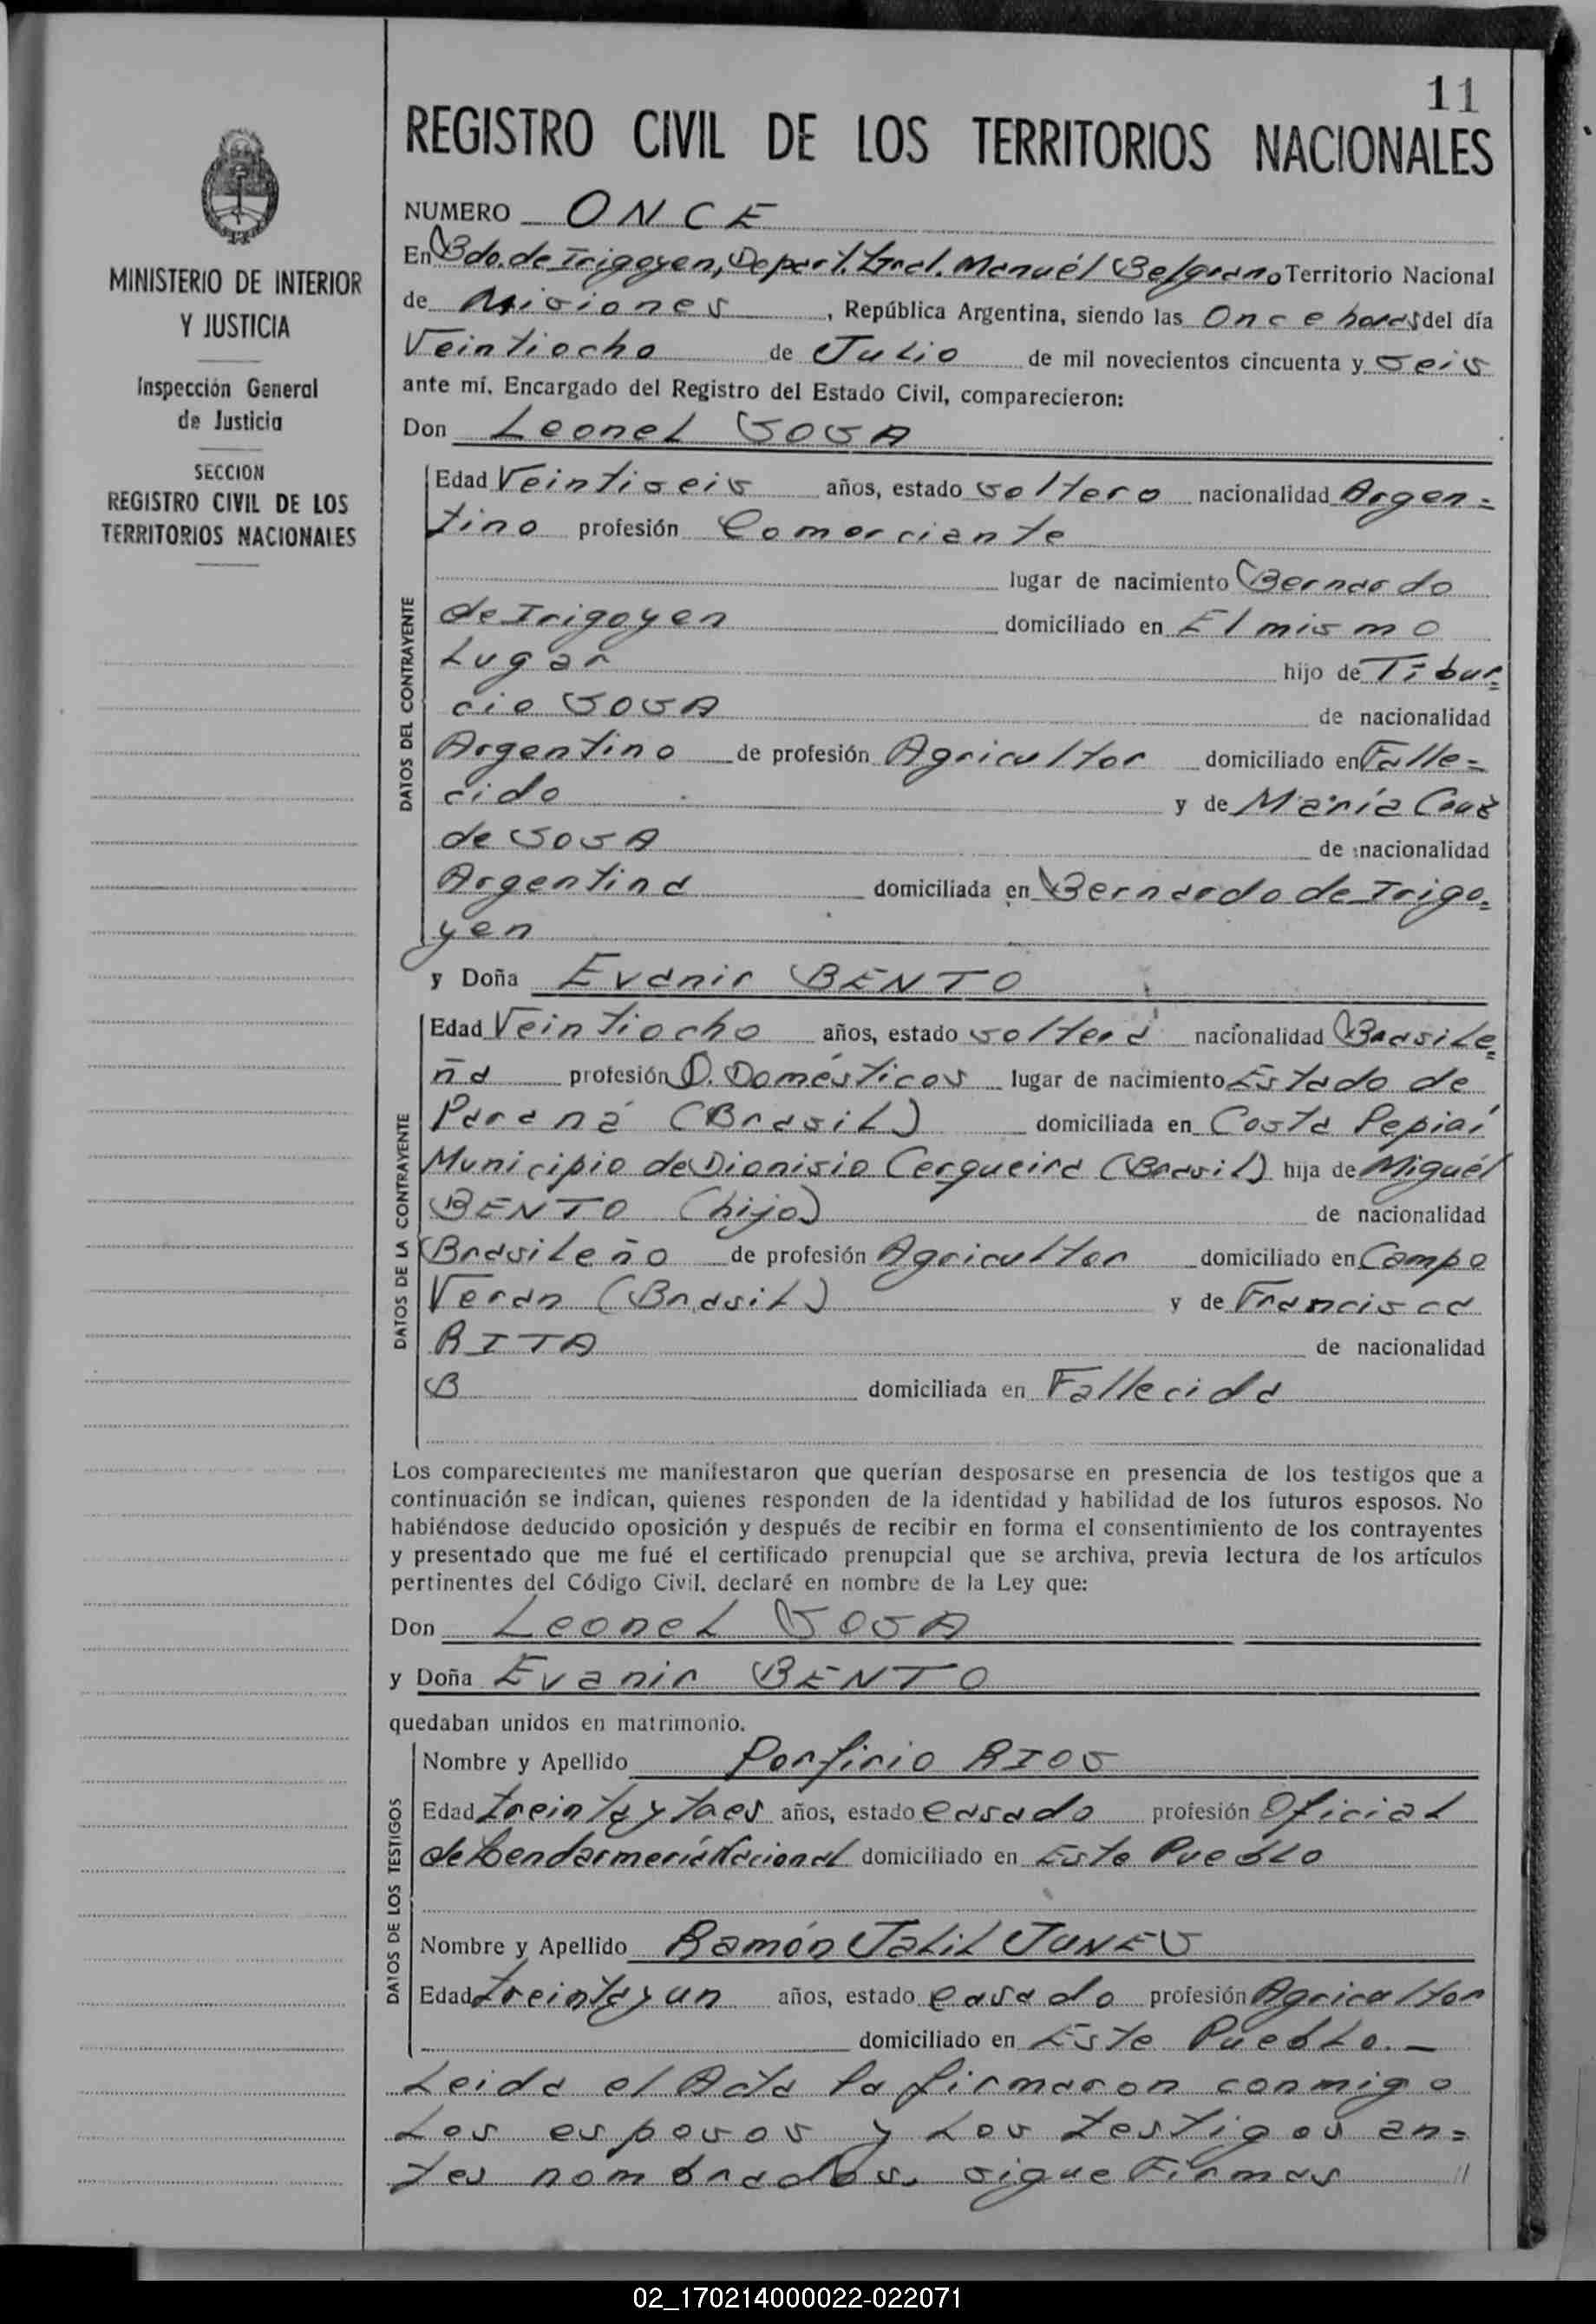 11
REGISTRO CIVIL DE LOS TERRITORIOS NACIONALES
MINISTERIO DE INTERIOR
Y JUSTICIA
Inspección General
de Justicia
SECCION
REGISTRO CIVIL DE LOS
TERRITORIOS NACIONALES
NUMERO ONCE
En Bdo. de Irigoyen, Depart. Gral. Manuél Belgrano Territorio Nacional
de Misiones, República Argentina, siendo las Once horas del día
Veintiocho de Julio de mil novecientos cincuenta y seis
ante mí, Encargado del Registro del Estado Civil, comparecieron:
Don Leonel SOSA
DATOS DEL CONTRAYENTE
Edad Veintiseis años, estado soltero nacionalidad Argen=
tino profesión Comerciante
lugar de nacimiento Bernardo
de Irigoyen domiciliado en El mismo
Lugar hijo de Tibur=
cio SOSA de nacionalidad
Argentino de profesión Agricultor domiciliado en Falle=
cido y de María Cruz
de SOSA de nacionalidad
Argentina domiciliada en Bernardo de Irigo=
yen
y Doña Evanir BENTO
DATOS DE LA CONTRAYENTE
Edad Veintiocho años, estado soltera nacionalidad Brasile=
ña profesión Q. Domésticos lugar de nacimiento Estado de
Paraná (Brasil) domiciliada en Costa Pepiaí
Municipio de Dionisio Cerqueira (Brasil) hija de Miguél
BENTO (hijo) de nacionalidad
Brasileño de profesión Agricultor domiciliado en Campo
Veran (Brasil) y de Francisca
RITA de nacionalidad
B domiciliada en Fallecida
Los comparecientes me manifestaron que querían desposarse en presencia de los testigos que a
continuación se indican, quienes responden de la identidad y habilidad de los futuros esposos. No
habiéndose deducido oposición y después de recibir en forma el consentimiento de los contrayentes
y presentado que me fué el certificado prenupcial que se archiva, previa lectura de los artículos
pertinentes del Código Civil, declaré en nombre de la Ley que:
Don Leonel SOSA
y Doña Evanir BENTO
quedaban unidos en matrimonio.
DATOS DE LOS TESTIGOS
Nombre y Apellido Porfirio RIOS
Edad treinta y tres años, estado casado profesión Oficial
de Gendarmería Nacional domiciliado en Este Pueblo
Nombre y Apellido Ramón Jalil JUNES
Edad treinta y un años, estado casado profesión Agricultor
domiciliado en Este Pueblo. —
Leida el Acta la firmaron conmigo
Los esposos y Los testigos an=
tes nombrados. sigue Firmas //
02_170214000022-022071